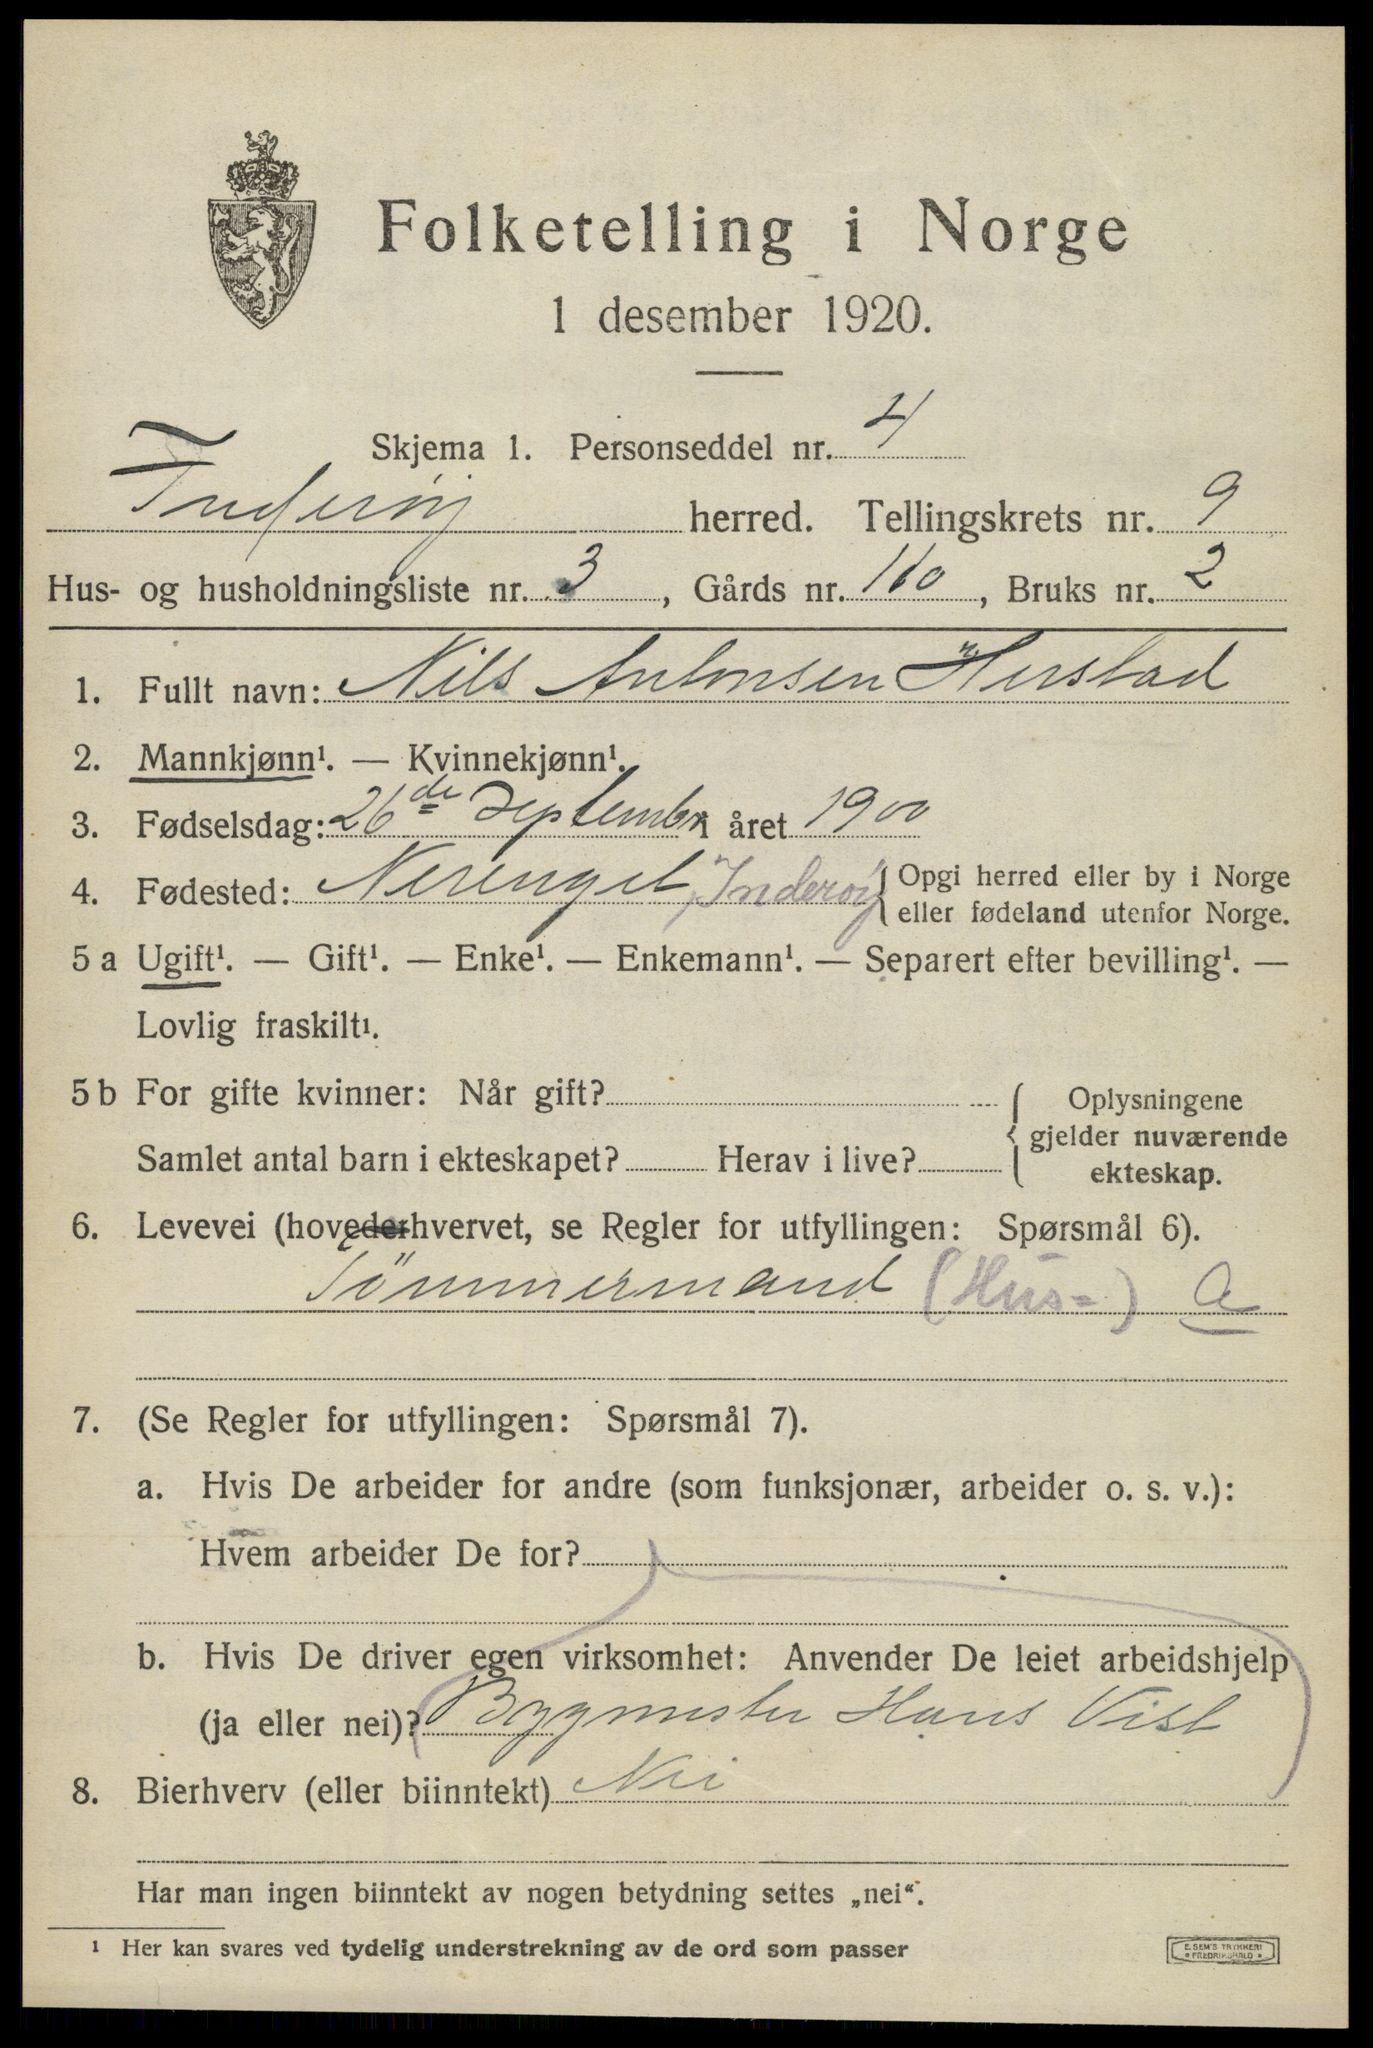 Folketelling i Norge
1 desember 1920.
Skjema 1. Personseddel nr. 4
Inderøy herred. Tellingskrets nr. 9
Hus- og husholdningsliste nr. 3, Gårds nr. 110, Bruks nr. 2
1. Fullt navn: Nils Antonsen Herstad
2. Mannkjønn¹. — Kvinnekjønn¹.
3. Fødselsdag: 26de September i året 1900
4. Fødested: Nerenget, Inderøy { Opgi herred eller by i Norge
eller fødeland utenfor Norge.
5 a Ugift¹. — Gift¹. — Enke¹. — Enkemann¹. — Separert efter bevilling¹. —
Lovlig fraskilt¹.
5 b For gifte kvinner: Når gift? { Oplysningene
gjelder nuværende
Samlet antal barn i ekteskapet? Herav i live? ekteskap.
6. Levevei (hovederhvervet, se Regler for utfyllingen: Spørsmål 6).
Tömmermand (Hus=) a
7. (Se Regler for utfyllingen: Spørsmål 7).
a. Hvis De arbeider for andre (som funksjonær, arbeider o. s. v.):
Hvem arbeider De for?
b. Hvis De driver egen virksomhet: Anvender De leiet arbeidshjelp
(ja eller nei)? Bygmester Hans Vist
8. Bierhverv (eller biinntekt) Nei
Har man ingen biinntekt av nogen betydning settes „nei“.
¹ Her kan svares ved tydelig understrekning av de ord som passer
E. SEM'S TRYKKERI
FREDRIKSHALD